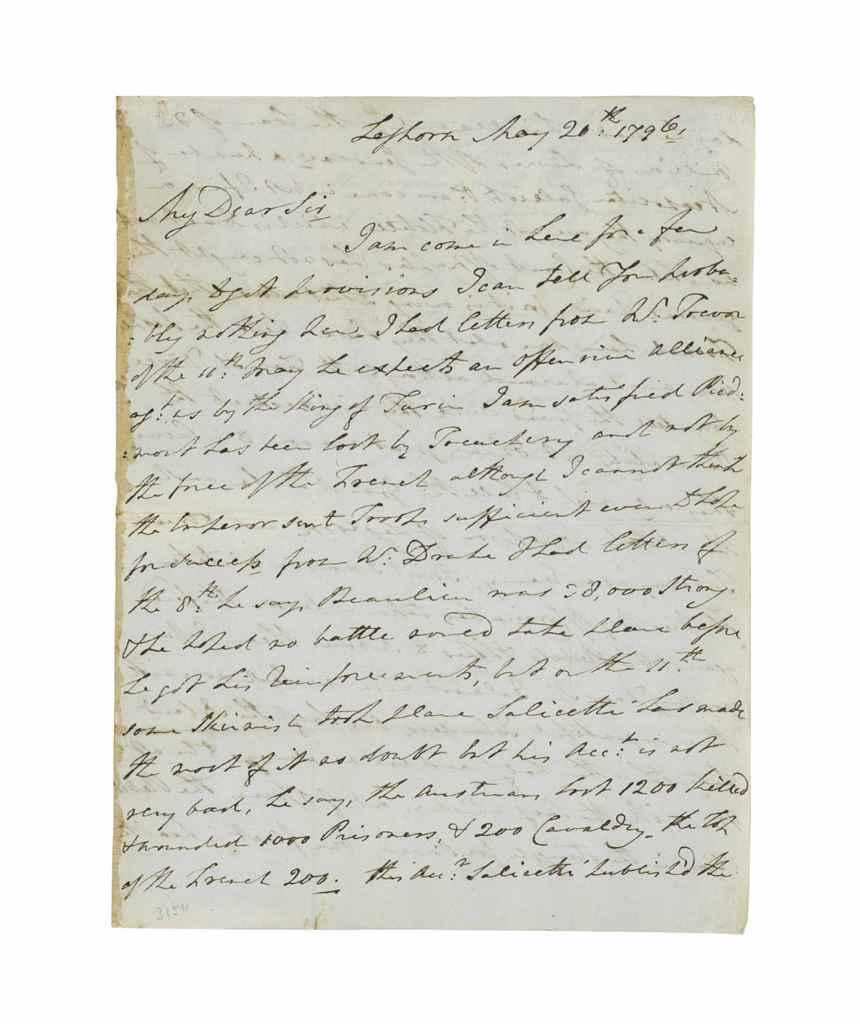 Leghorn May 20th: 1796,
My Dear Sir
I am come in here for a few
days to get provisions I can tell You proba-
:bly nothing new. I had letters from Mr: Trevor
of the 11th: May he expects an offensive alliance
agt: us by the King of Turin I am satisfied Pied:
:mont has been lost by Treachery and not by
the force of the French altho' I cannot think
the Emperor sent Troops sufficient even to hope
for success from Mr: Drake I had letters of
the 8th: he says Beaulieu was 38,000 Strong.
& he hoped no battle wou'd take place before
he got his reinforcements, but on the 11th
some skirmish took place Salicetti has made
the most of it no doubt but his acct: is not
very bad, he says, the Austrians lost 1200 killed
& wounded 1000 Prisoners, & 200 Cavaldry. the loss
of the French 200. this acct: Salicetti publish'd the
3154